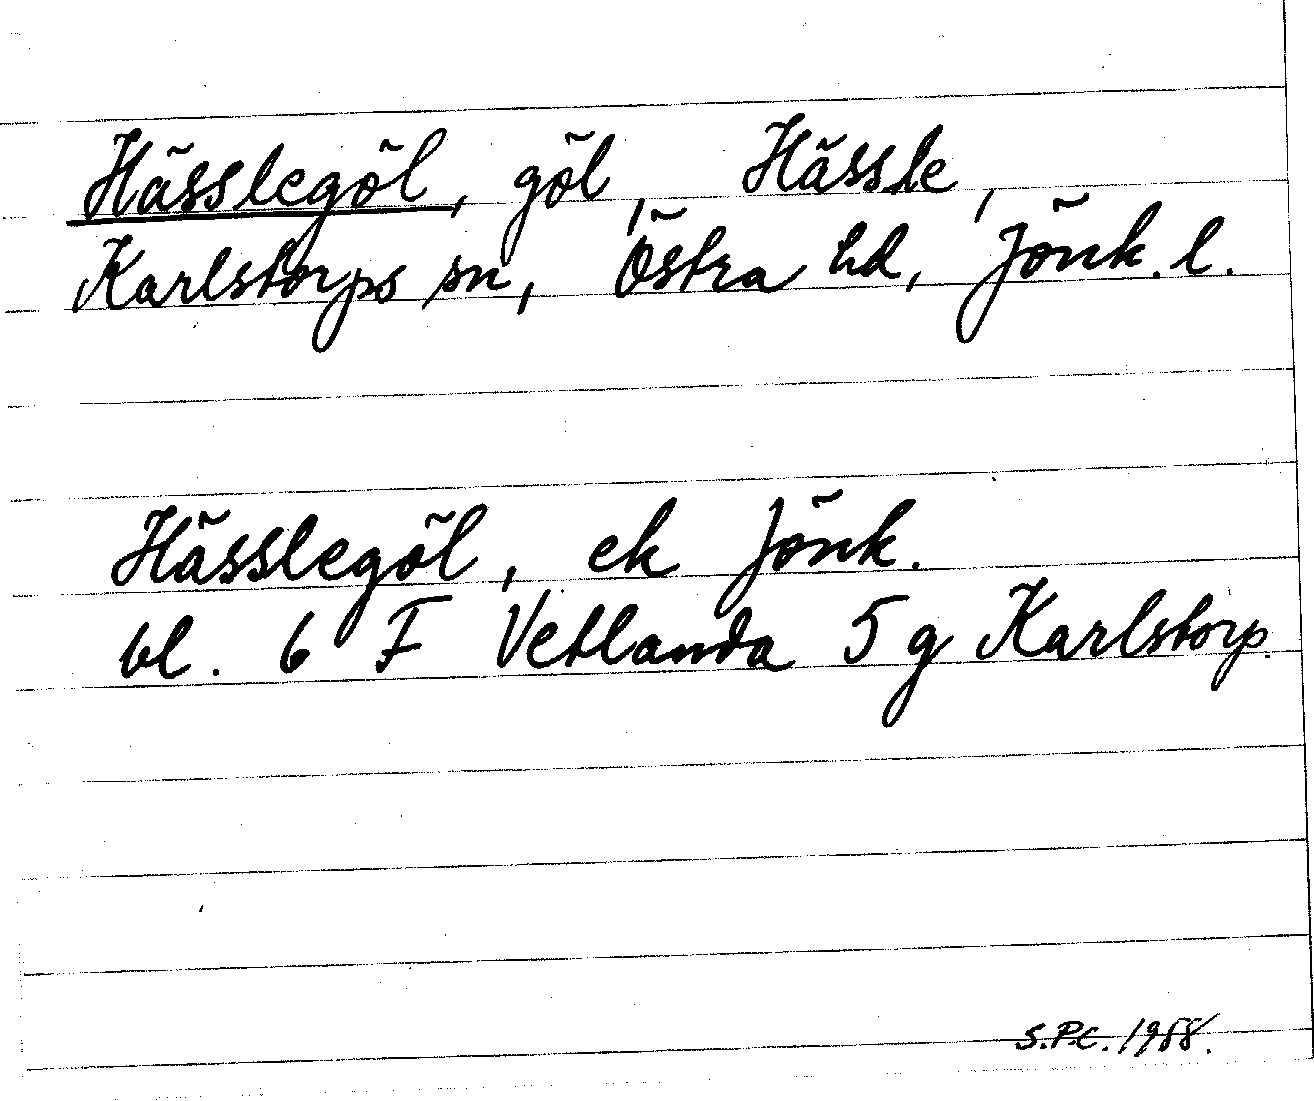 Hässlegöl, göl, Hässle,
Karlstorps sn, Östra hd, Jönk. l.
Hässlegöl, ek Jönk.
bl. 6 F Vetlanda 5 g Karlstorp.
S.P.C. 1988.